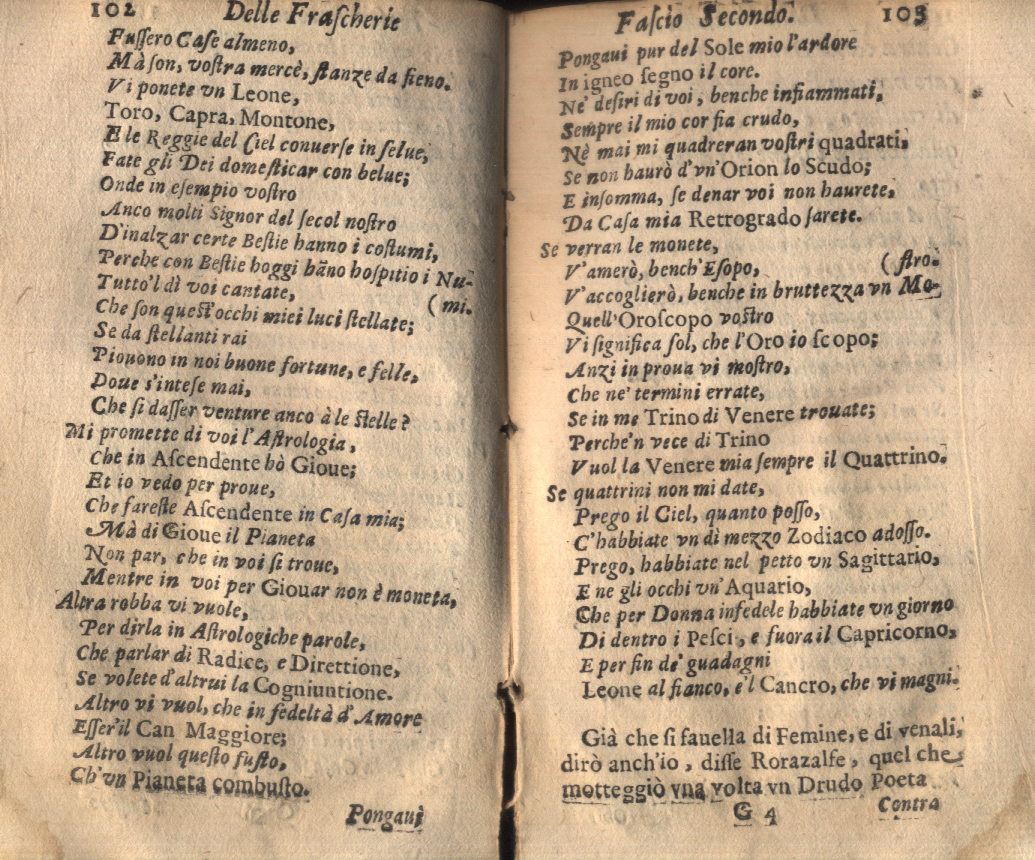 102 Delle Frascherie
Fussero Case almeno,
Mà son, vostra mercè, stanze da fieno.
Vi ponete vn Leone,
Toro, Capra, Montone,
E le Reggie del Ciel conuerse in selue,
Fate gli Dei domesticar con belue;
Onde in esempio vostro
Anco molti Signor del secol nostro
D'inalzar certe Bestie hanno i costumi,
Perche con Bestie hoggi hãno hospitio i Nu-
Tutto'l dì voi cantate, (mi.
Che son quest'occhi miei luci stellate;
Se da stellanti rai
Piouono in noi buone fortune, e felle,
Doue s'intese mai,
Che si dasser venture anco à le stelle?
Mi promette di voi l'Astrologia,
Che in Ascendente hò Gioue;
Et io vedo per proue,
Che fareste Ascendente in Casa mia;
Mà di Gioue il Pianeta
Non par, che in voi si troue,
Mentre in voi per Giouar non è moneta,
Altra robba vi vuole,
Per dirla in Astrologiche parole,
Che parlar di Radice, e Direttione,
Se volete d'altrui la Cogniuntione.
Altro vi vuol, che in fedeltà d'Amore
Esser'il Can Maggiore;
Altro vuol questo fusto,
Ch'vn Pianeta combusto.
Pongaui
Fascio Secondo. 103
Pongaui pur del Sole mio l'ardore
In igneo segno il core.
Ne' desiri di voi, benche infiammati,
Sempre il mio cor fia crudo,
Nè mai mi quadreran vostri quadrati,
Se non haurò d'vn'Orion lo Scudo;
E insomma, se denar voi non haurete,
Da Casa mia Retrogrado sarete.
Se verran le monete,
V'amerò, bench'Esopo, (stro.
V'accoglierò, benche in bruttezza vn Mo-
Quell'Oroscopo vostro
Vi significa sol, che l'Oro io scopo;
Anzi in proua vi mostro,
Che ne' termini errate,
Se in me Trino di Venere trouate;
Perche'n vece di Trino
Vuol la Venere mia sempre il Quattrino.
Se quattrini non mi date,
Prego il Ciel, quanto posso,
C'habbiate vn dì mezzo Zodiaco adosso.
Prego, habbiate nel petto vn Sagittario,
E ne gli occhi vn'Aquario,
Che per Donna infedele habbiate vn giorno
Di dentro i Pesci, e fuora il Capricorno,
E per fin de' guadagni
Leone al fianco, e'l Cancro, che vi magni.
Già che si fauella di Femine, e di venali,
dirò anch'io, disse Rorazalfe, quel che
motteggiò vna volta vn Drudo Poeta
G 4 Contra